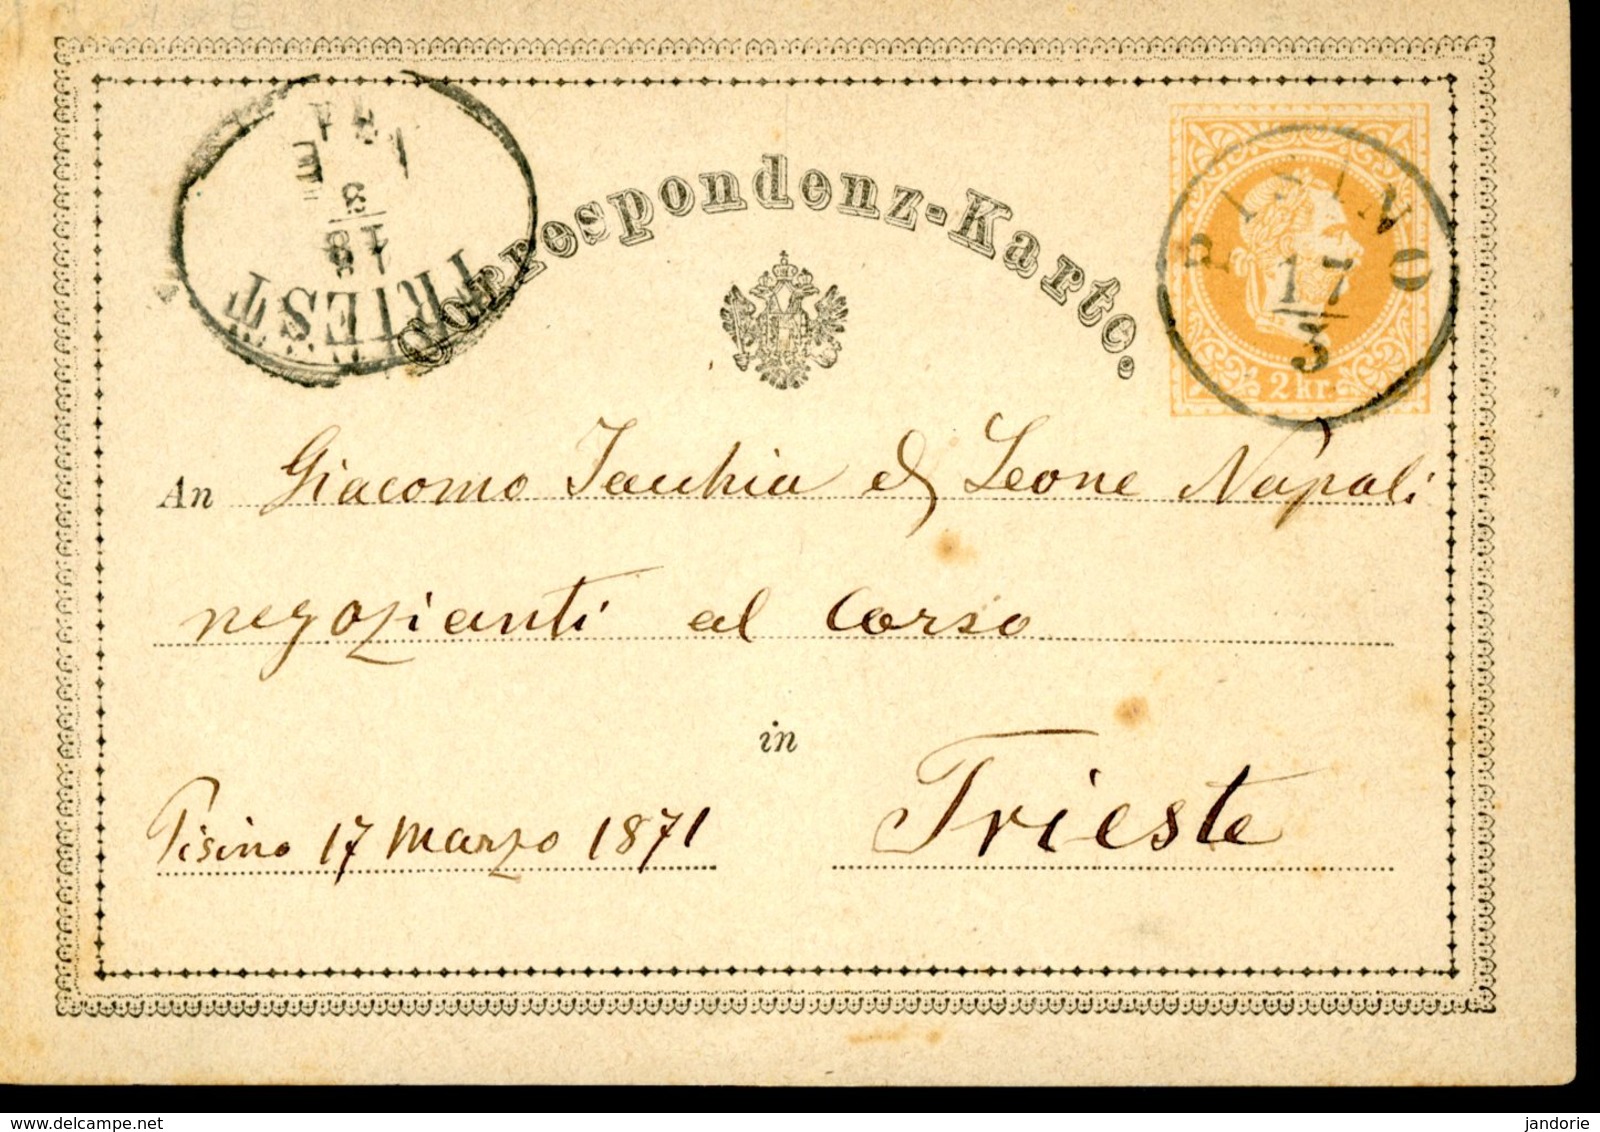 Correspondenz-Karte.
TRIEST
18
3
E
71
PISINO
17
3
2 kr.
An Giacomo Jacchia & Leone Napoli
negozianti al Corso
in
Pisino 17 Marzo 1871
Trieste
delcampe.net
jandorie